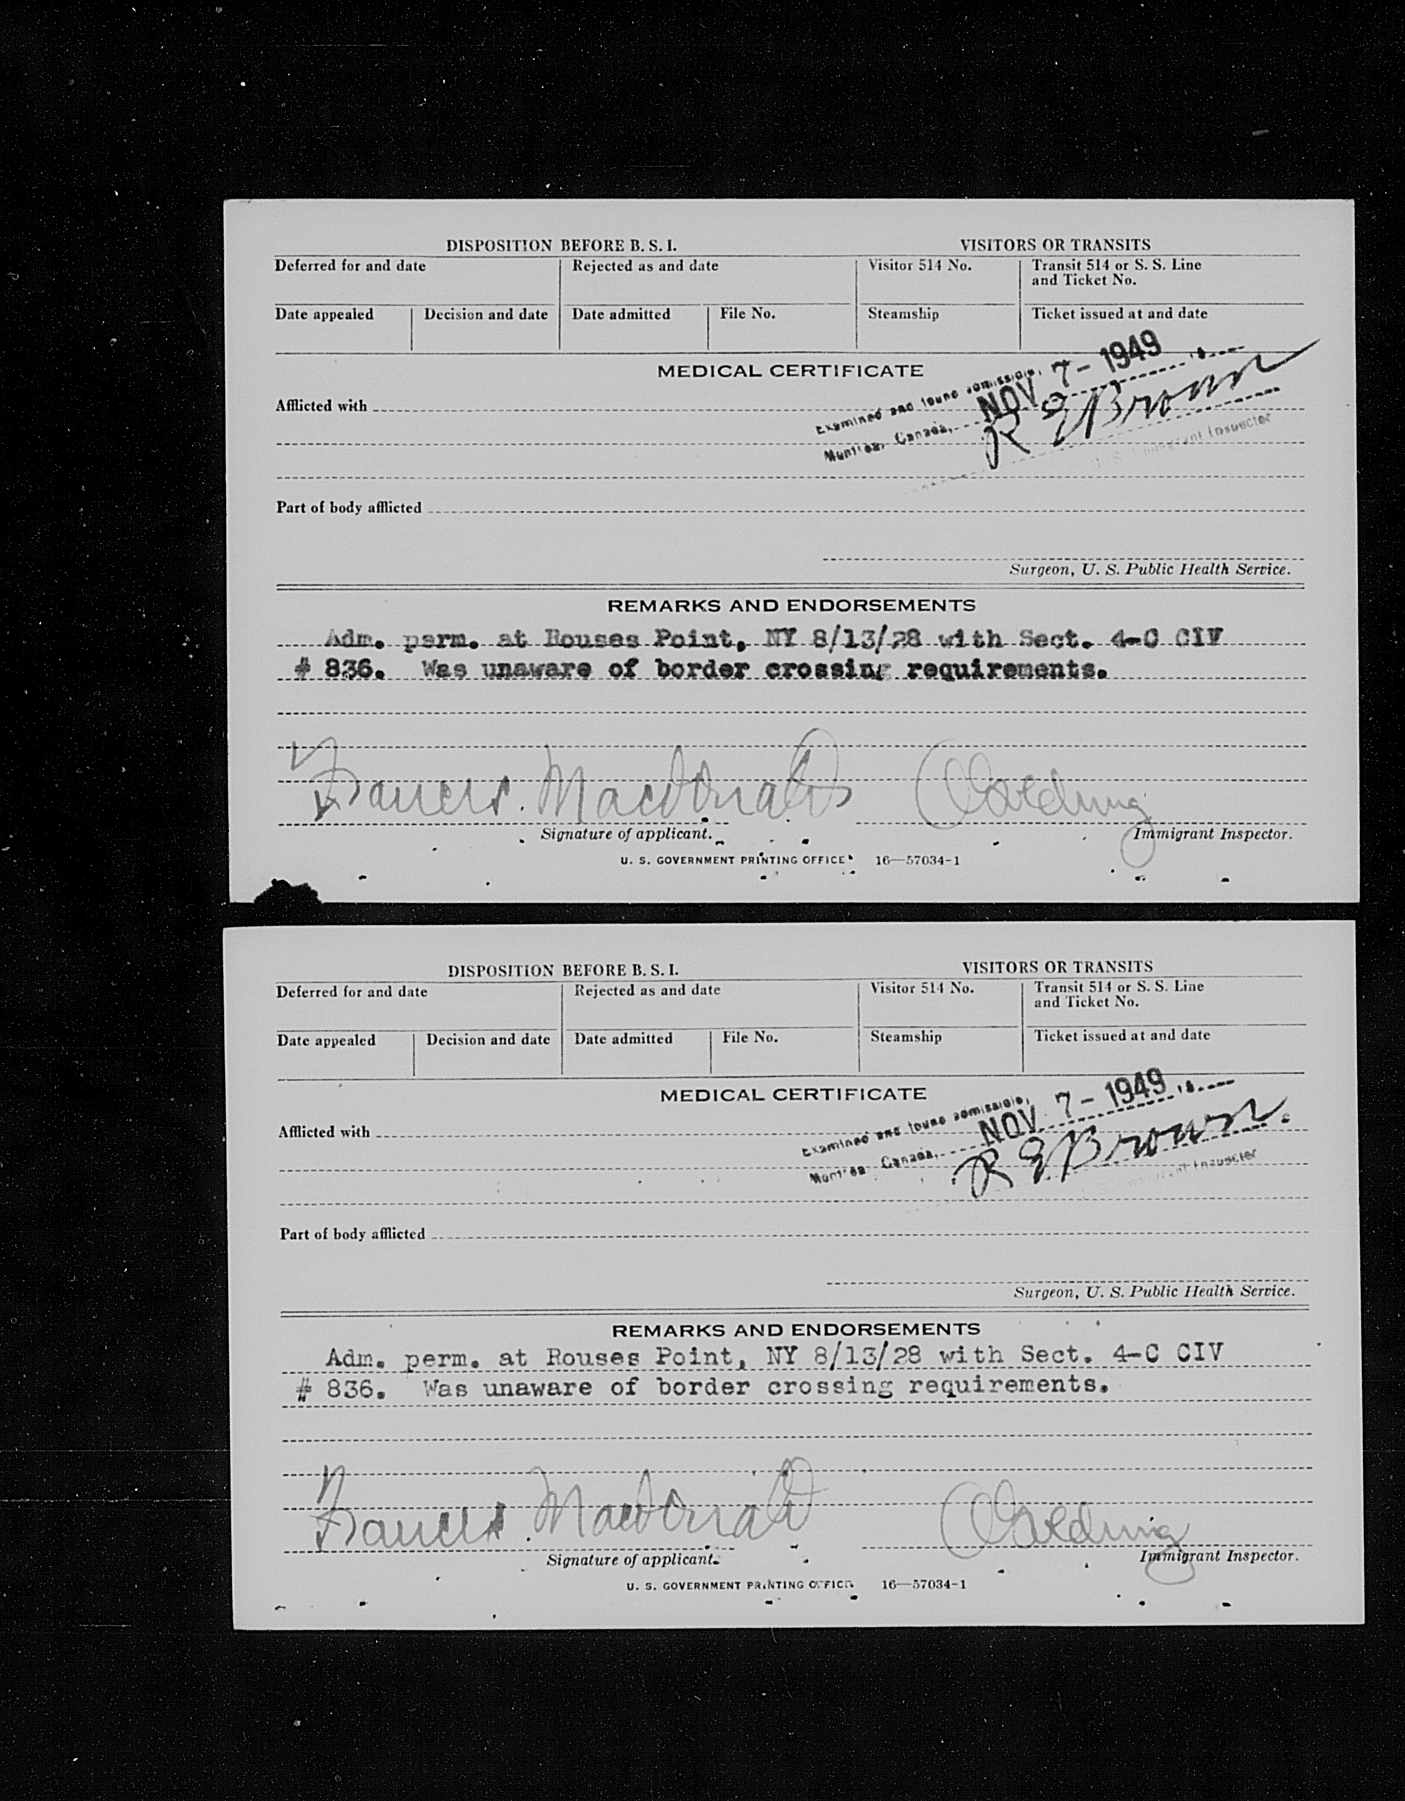 DISPOSITION BEFORE B. S. I. VISITORS OR TRANSITS
Deferred for and date Rejected as and date Visitor 514 No. Transit 514 or S. S. Line
and Ticket No.
Date appealed Decision and date Date admitted File No. Steamship Ticket issued at and date
MEDICAL CERTIFICATE
Examined and found admissible,
NOV 7 - 1949
Afflicted with
Montreal Canada,
R E Brown
U. S. Immigrant Inspector
Part of body afflicted
Surgeon, U. S. Public Health Service.
REMARKS AND ENDORSEMENTS
Adm. perm. at Rouses Point, NY 8/13/28 with Sect. 4-C CIV
# 836. Was unaware of border crossing requirements.
Francis. Macdonald
Signature of applicant. Immigrant Inspector.
U. S. GOVERNMENT PRINTING OFFICE 16—57034-1
DISPOSITION BEFORE B. S. I. VISITORS OR TRANSITS
Deferred for and date Rejected as and date Visitor 514 No. Transit 514 or S. S. Line
and Ticket No.
Date appealed Decision and date Date admitted File No. Steamship Ticket issued at and date
MEDICAL CERTIFICATE
Examined and found admissible,
NOV 7 - 1949
Afflicted with
Montreal Canada,
R E Brown
Immigrant Inspector
Part of body afflicted
Surgeon, U. S. Public Health Service.
REMARKS AND ENDORSEMENTS
Adm. perm. at Rouses Point, NY 8/13/28 with Sect. 4-C CIV
# 836. Was unaware of border crossing requirements.
Francis. Macdonald
Signature of applicant. Immigrant Inspector.
U. S. GOVERNMENT PRINTING OFFICE 16—57034-1